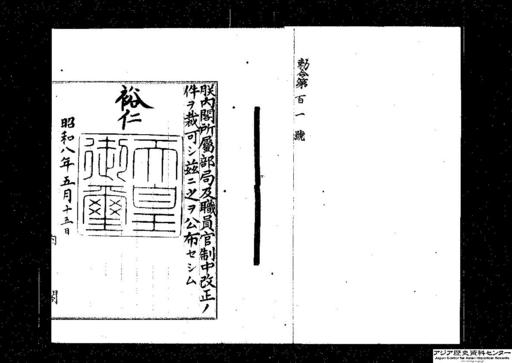 勅令第百一號
朕内閣所屬部局及職員官制中改正ノ
件ヲ裁可シ茲ニ之ヲ公布セシム
裕仁
天皇
御璽
昭和八年五月十三日
内閣
アジア歴史資料センター
Japan Center for Asian Historical Records